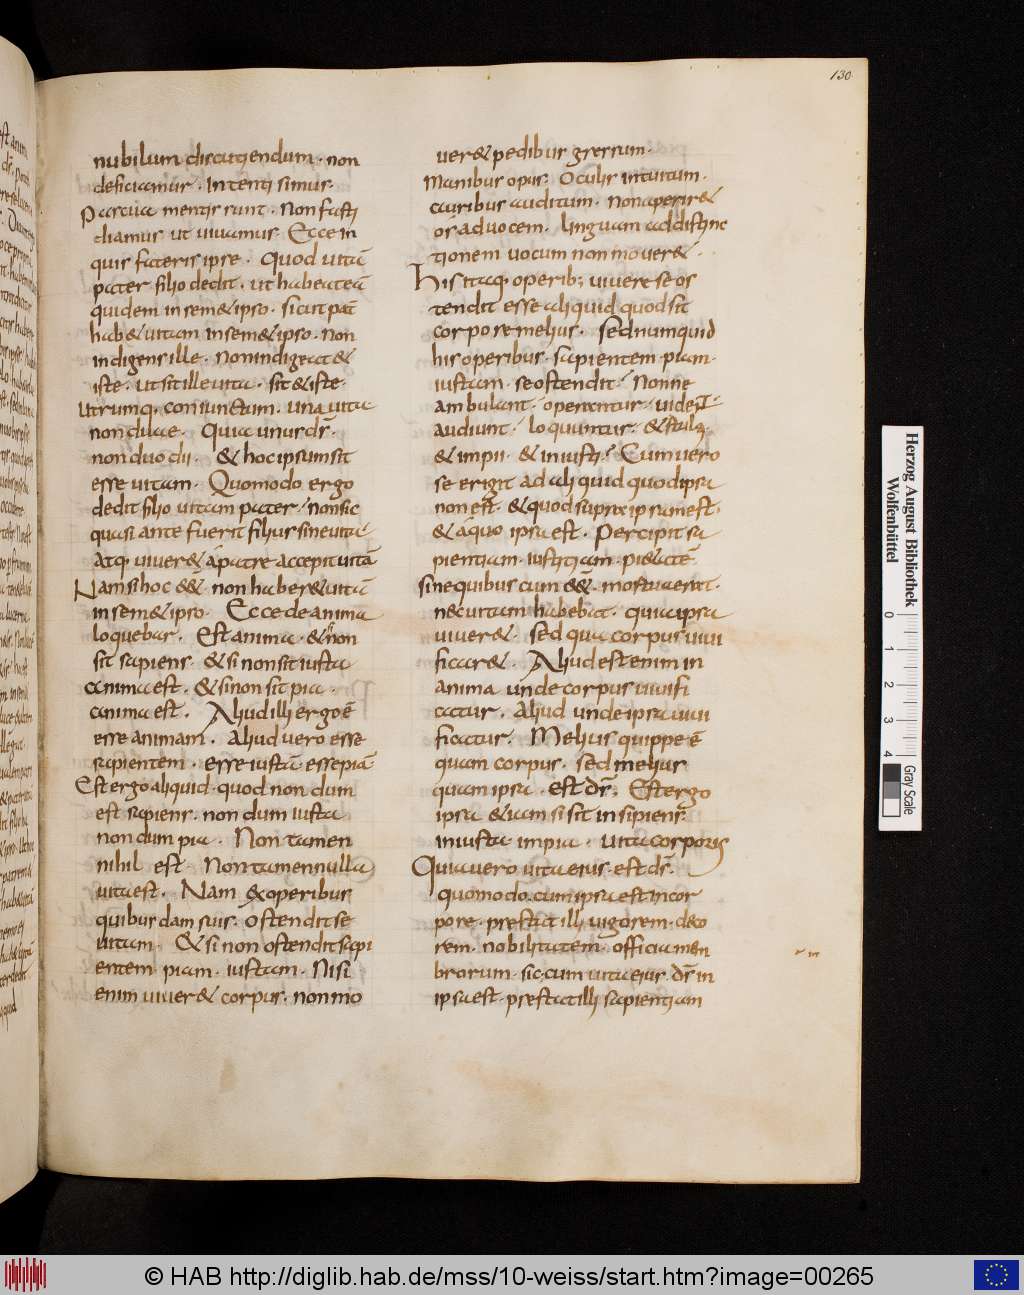 130
nubilum discutiendum · non
deficiamus · Intenti simus·
Pascua mentis sunt · Non fasti
diamus ut uiuamus Ecce in
quis fateris ipse · Quod uitā
pater filio dedit · ut habeat eā
quidem in sem&ipso · sicut pat̄
hab& uitam in sem&ipso · non
indigens ille · Non indigeat &
iste · ut sit ille uita · sit & iste·
Utrumq, coniunctum · una uita
non duae · Quia unus dr̄ ·
non duo dii · & hoc ipsum sit
esse uitam · Quomodo ergo
dedit filio uitam pater · non sic
quasi ante fuerit filius sine uita
Atq uiuer& a patre accepit uitā
Nam si hoc ee& non haber& uitā
in sem&ipso · Ecce de anima
loquebar · Est anima · & non
sit sapiens · & si non sit iusta
anima est · & si non sit pia ·
anima est · Aliud illi ergo ē
esse animam · Aliud uero esse
sapientem · esse iustā esse piā
Est ergo aliquid · quod non dum
est sapiens · non dum iusta
non dum pia · Non tamen
nihil est · Non tamen nulla
uita est · Nam & ex operibus
quibusdam suis · ostendit se
uitam · & si non ostendit sapi
entem piam · iustam · Nisi
enim uiuer& corpus · non mo
uer& pedibus gressum·
Manibus opus · Oculis intuitum·
auribus auditum · non aperir&
os ad uocem · linguam ad distinc
tionem uocum non mouer& ·
His itaq operib; uiuere se os
tendit esse aliquid quod sit
corpore melius · sed numquid
his operibus · sapientem · piam·
iustam · se ostendit · Nonne
ambulant · operantur · uident
audiunt · loquuntur · & stulti
& impii · & iniusti · Cum uero
se erigit ad aliquid quod ipsa
non est · & quod supra ipsam est·
& a quo ipsa est · Percipit sa
pientiam · iustitiam · pi&atē ·
sine quibus cum ee& · mortua erat ·
nec uitam habebat · qua ipsa
uiuer& · sed qua corpus uiui
ficar& · Aliud est enim in
anima unde corpus uiuifi
catur · Aliud unde ipsa uiui
ficatur · Melius quippe ē
quam corpus · sed melius
quam ipsa · est dr̄ · Est ergo
ipsa & iam si sit insipiens·
iniusta impia · uita corporis
Quia uero uita eius · est dr̄ ·
quomodo · cum ipsa est in cor
pore · prestat illi uigorem · deco
rem · nobilitatem · officia men
brorum · sic cum uita eius · dr̄ in
ipsa est · prestat illi sapientiam
Herzog August Bibliothek
Wolfenbüttel
0 1 2 3 4
Gray Scale
© HAB http://diglib.hab.de/mss/10-weiss/start.htm?image=00265